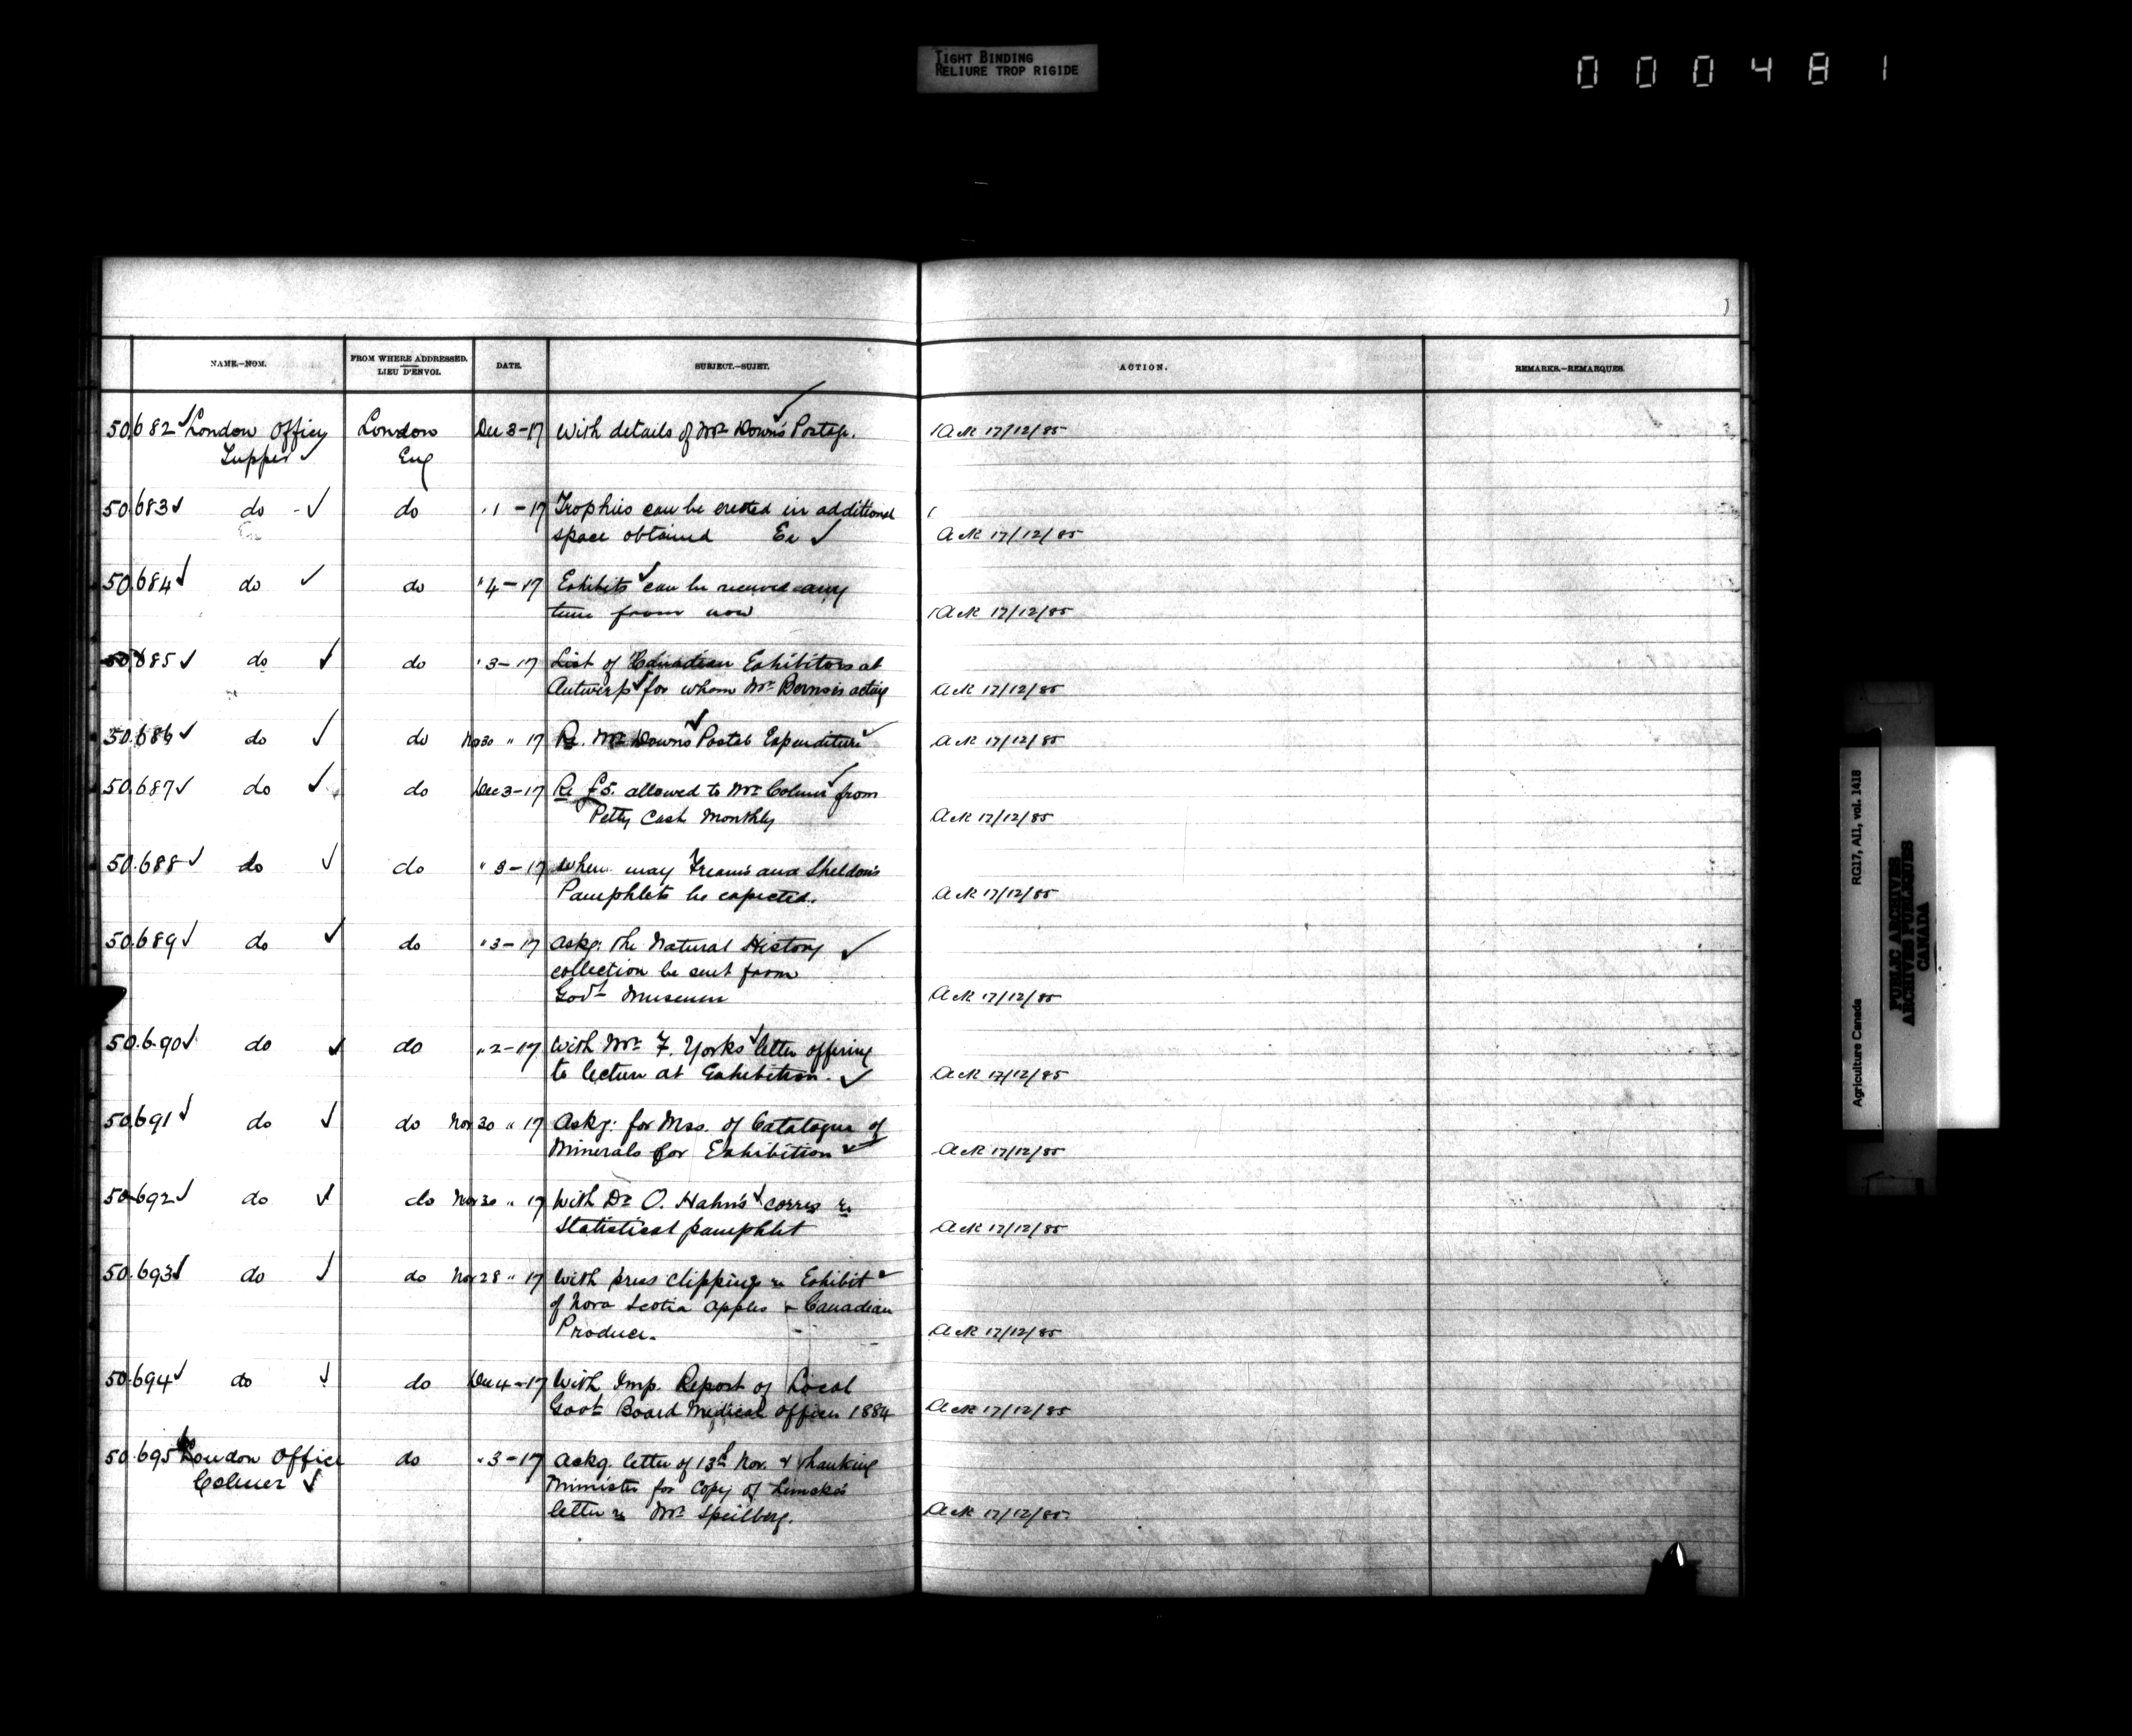 TIGHT BINDING
RELIURE TROP RIGIDE
000481
NAME.—NOM. FROM WHERE ADDRESSED. LIEU D'ENVOI. DATE. SUBJECT.—SUJET. ACTION. REMARKS.—REMARQUES.
50.682 London Office London Dec 3-17 With details of Mr Down's Postage. Ack 17/12/85
Tupper Eng
50.683 do do " 1-17 Trophies can be erected in additional
space obtained Ex Ack 17/12/85
50.684 do do " 4-17 Exhibits can be received any
time from now Ack 17/12/85
50.685 do do " 3-17 List of Canadian Exhibitors at
Antwerp for whom Mr is acting Ack 17/12/85
50.686 do do Nov 30 " 17 Re. Mr Downs Postal Expenditure Ack 17/12/85
50.687 do do Dec 3-17 Re £5. allowed to Mr Colmer from
Petty Cash Monthly Ack 17/12/85
50.688 do do " 3-17 When may Fream's and Sheldon's
Pamphlets be expected. Ack 17/12/85
50.689 do do " 3-17 Askg. the Natural History
collection be sent from
Govt Museum Ack 17/12/85
50.690 do do " 2-17 With Mr F. Yorks letter offering
to lecture at Exhibition. Ack 17/12/85
50.691 do do Nov 30 " 17 Askg: for Mss. of Catalogue of
Minerals for Exhibition Ack 17/12/85
50.692 do do Nov 30 " 17 With Dr O. Hahn's corres re
Statistical pamphlet Ack 17/12/85
50.693 do do Nov 28 " 17 With press clippings re Exhibit
of Nova Scotia apples & Canadian
Produce. Ack 17/12/85
50.694 do do Dec 4-17 With Imp. Report of Local
Govt Board Medical Officer 1884 Ack 17/12/85
50.695 London Office do " 3-17 Ackg. letter of 13th Nov. & thanking
Colmer Minister for Copy of
letter re Mr Speilberg. Ack 17/12/85
Agriculture Canada RG17, AII, vol. 1418
PUBLIC ARCHIVES
ARCHIVES PUBLIQUES
CANADA